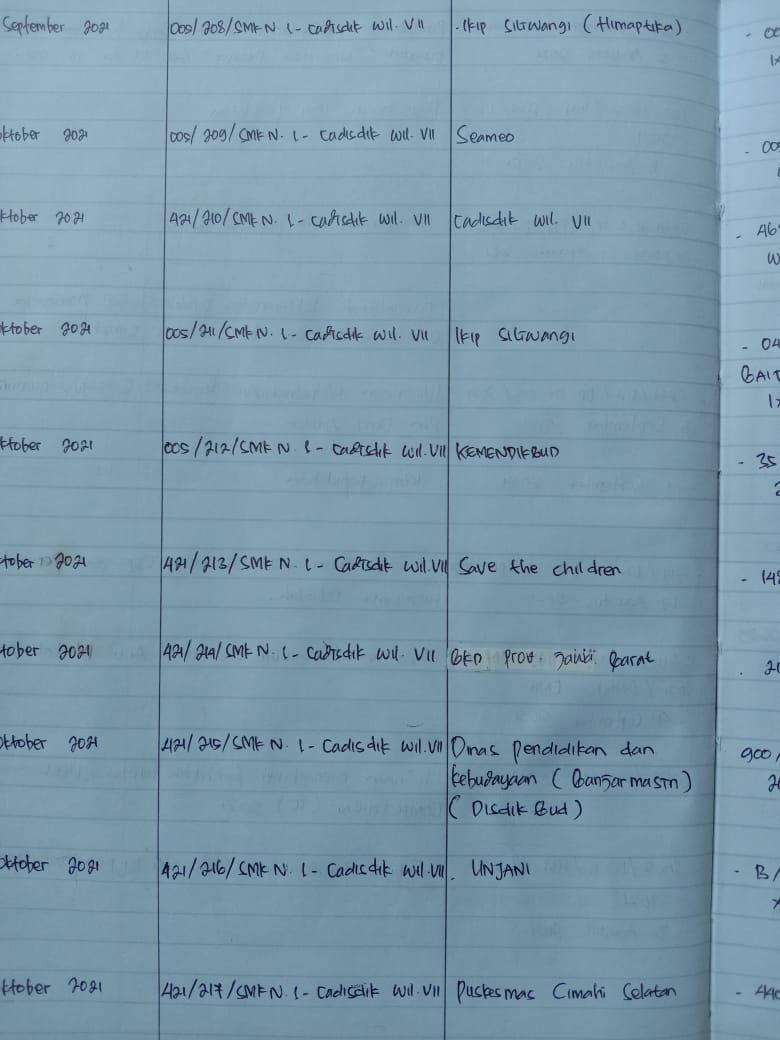 September 2021 005/208/SMK N. 1 - Cadisdik Wil. VII - IKIP SILIWANGI (Himaptika) - 00
1x
ktober 2021 005/209/SMK N. 1 - Cadisdik Wil. VII Seameo - 005
ktober 2021 421/210/SMK N. 1 - Cadisdik Wil. VII Cadisdik Wil. VII - A6
W
ktober 2021 005/211/SMK N. 1 - Cadisdik Wil. VII IKIP SILIWANGI - 04
BAIT
1x
ktober 2021 005/212/SMK N. 1 - Cadisdik Wil. VII KEMENDIKBUD - 35
2
tober 2021 421/213/SMK N. 1 - Cadisdik Wil. VII Save the children - 148
tober 2021 421/214/SMK N. 1 - Cadisdik Wil. VII BKD Prov. Jawa Barat . 20
Oktober 2021 421/215/SMK N. 1 - Cadisdik Wil. VII Dinas Pendidikan dan 900/
kebudayaan (Banjarmasin) 20
(Disdik Bud)
Oktober 2021 421/216/SMK N. 1 - Cadisdik Wil. VII . UNJANI - B/
ktober 2021 421/217/SMK N. 1 - Cadisdik Wil. VII Puskesmas Cimahi Selatan - 440